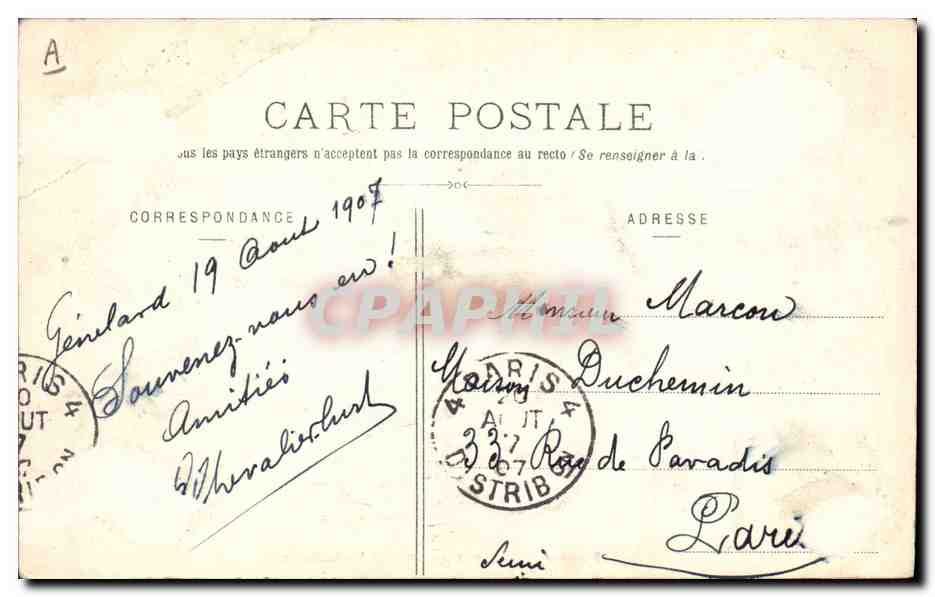 A
CARTE POSTALE
ous les pays étrangers n'acceptent pas la correspondance au recto (Se renseigner à la
CORRESPONDANCE
Génelard 19 Aout 1907
Souvenez-vous en !
Amitiés
ADRESSE
Monsieur Marcou
Maison Duchemin
33 Rue de Paradis
Paris
PARIS 4
20
AOUT
07
DISTRIBON
RIS 4
UT
CPAPHIL